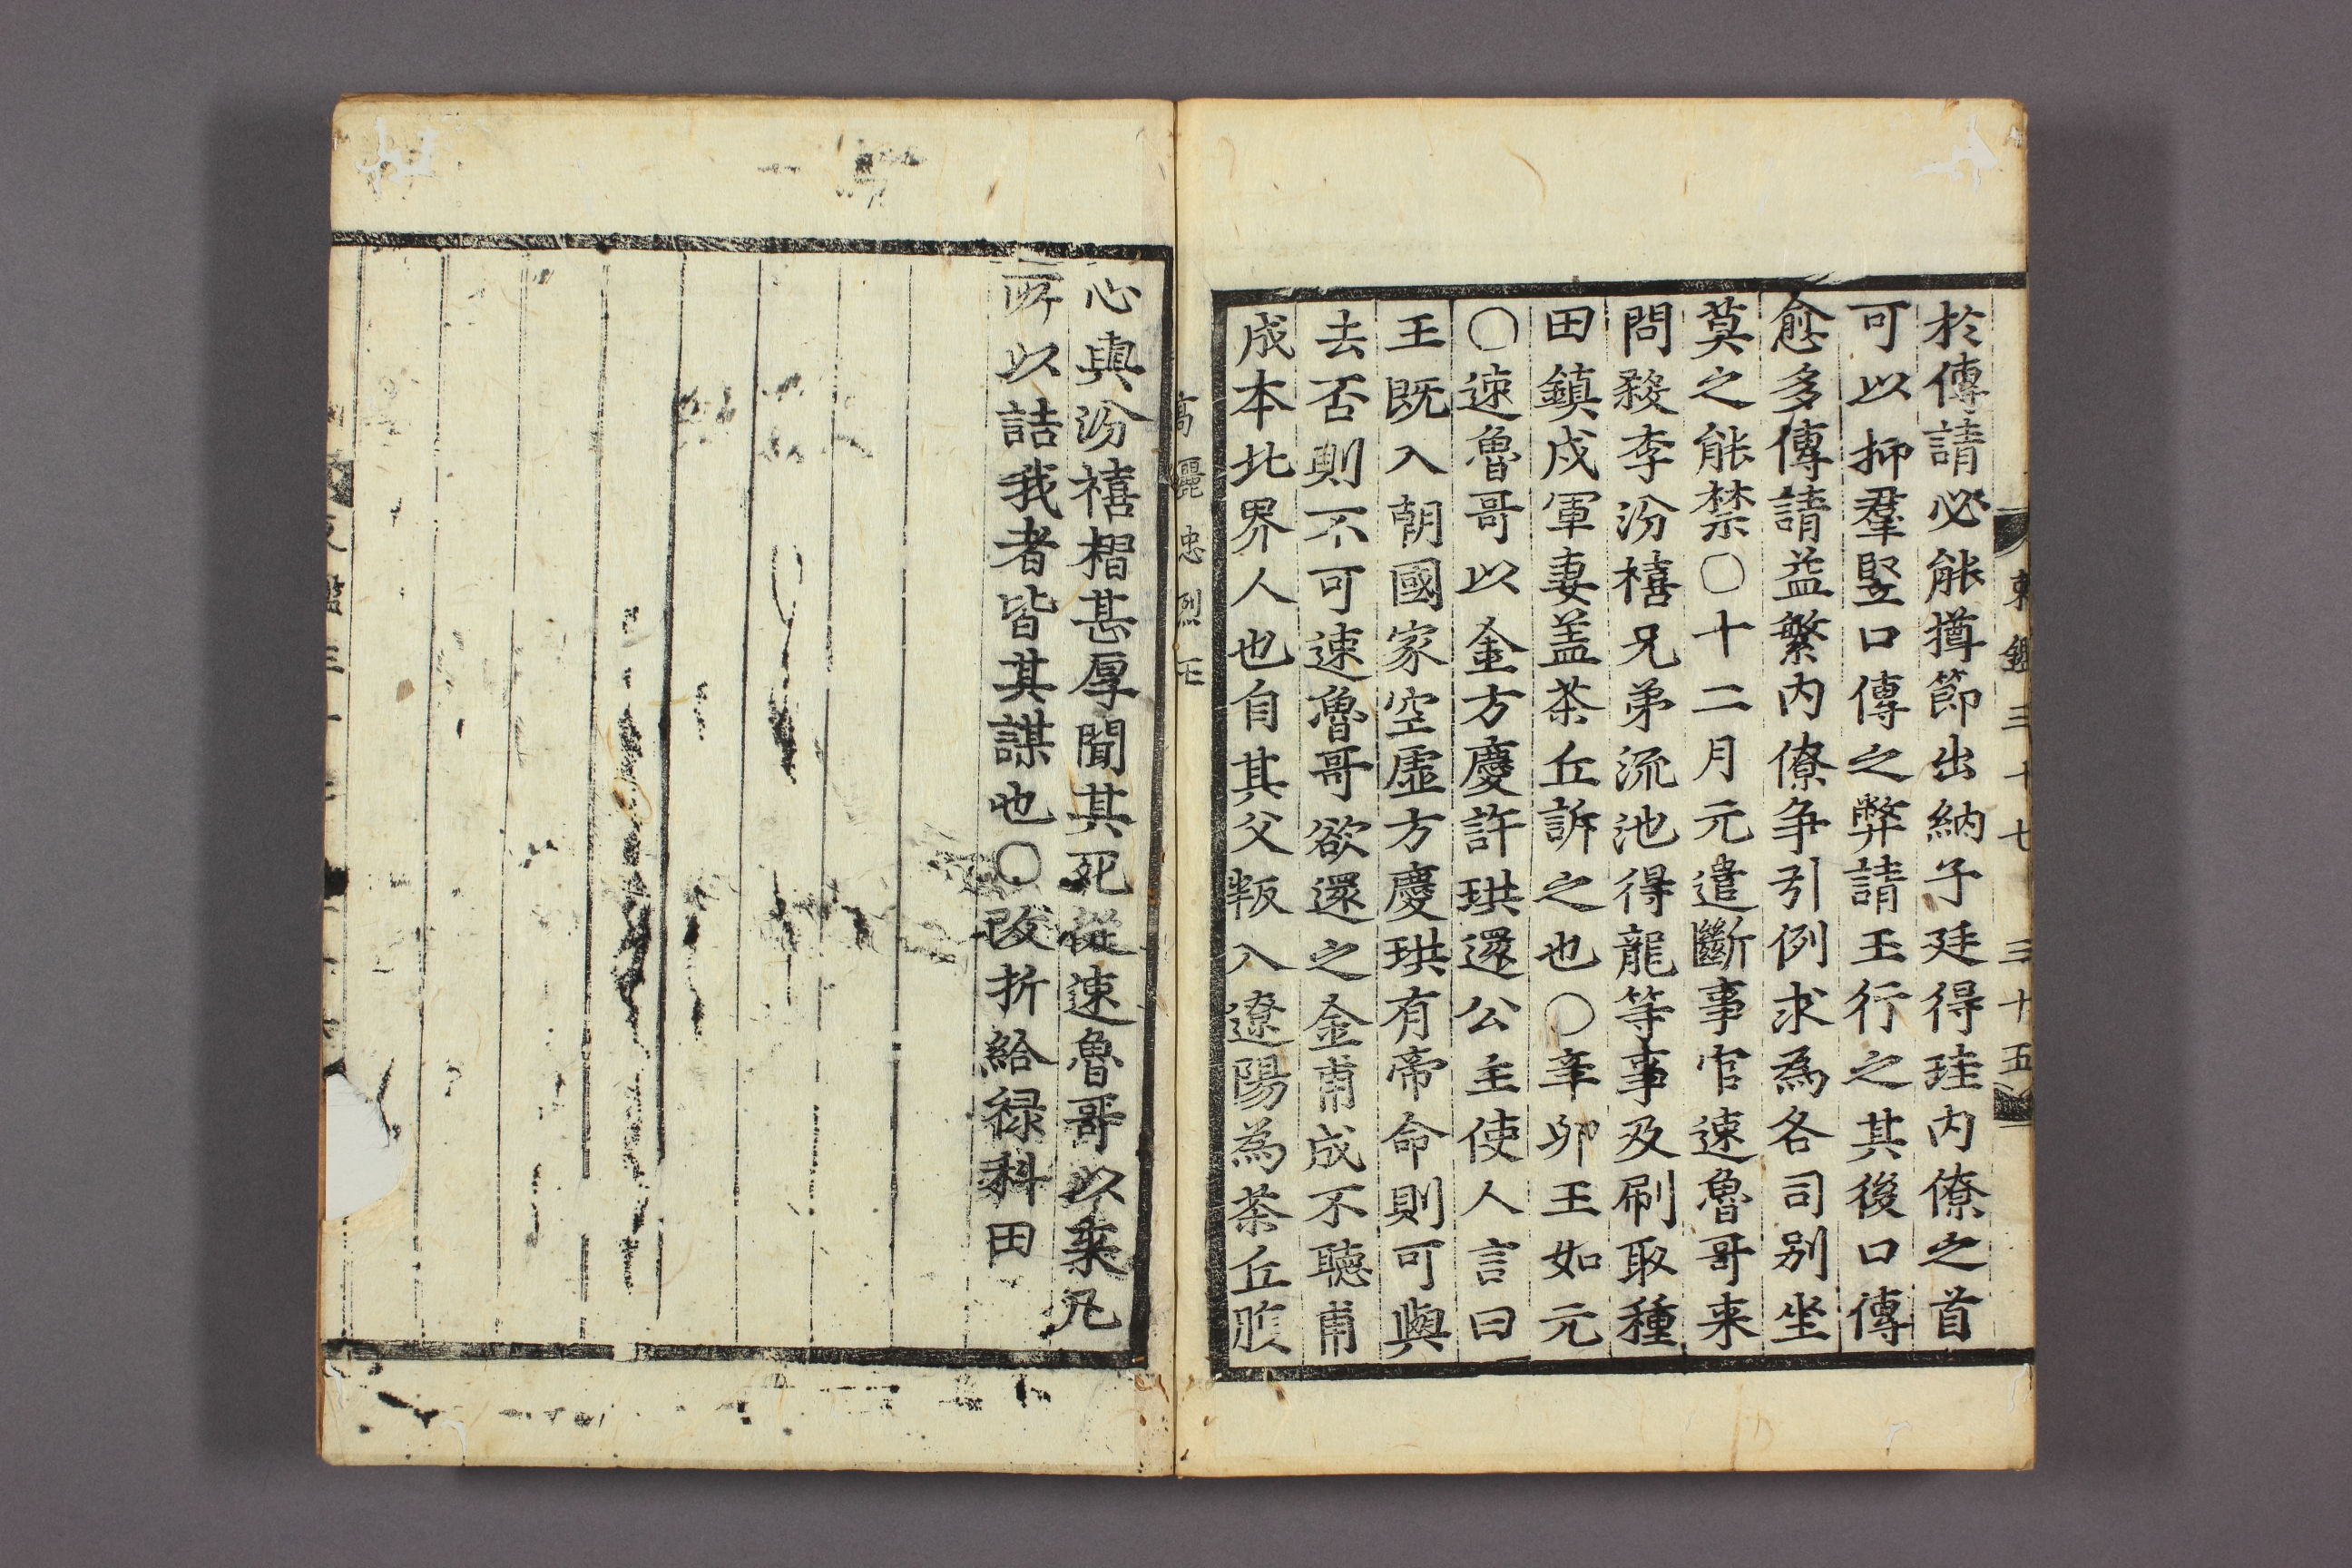 東鑑三十七 三十五
於傳請必能撙節出納予廷得珪内僚之首
可以抑羣竪口傳之弊請王行之其後口傳
愈多傳請益繁内僚争引例求為各司別坐
莫之能禁○十二月元遣斷事官速魯哥来
問殺李汾禧兄弟流池得龍等事及刷取種
田鎮戍軍妻盖茶丘訴之也○辛卯王如元
○速魯哥以金方慶許珙還公主使人言曰
王既入朝國家空虛方慶珙有帝命則可與
去否則不可速魯哥欲還之金甫成不聽甫
成本北界人也自其父叛入遼陽為茶丘腹
高麗忠烈王
心與汾禧槢甚厚聞其死從速魯哥以来凡
所以詰我者皆其謀也○改折給禄科田